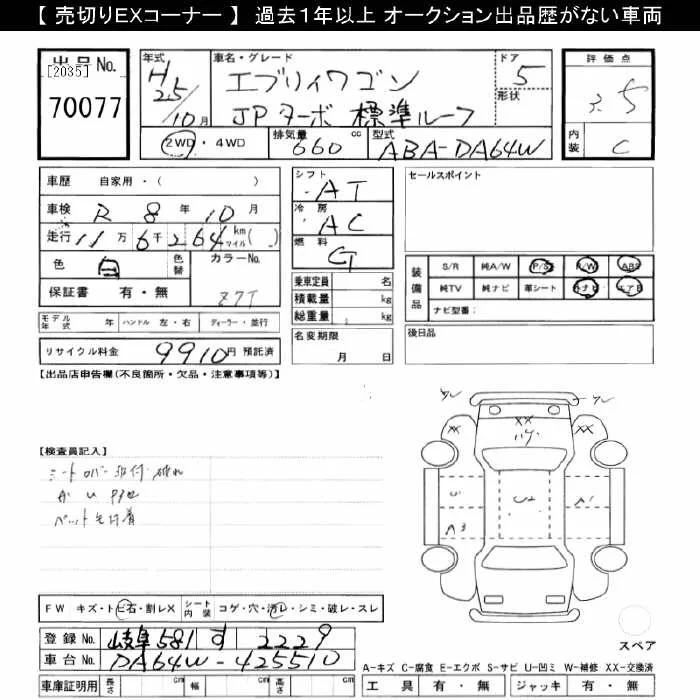 【 売切りEXコーナー 】 過去1年以上 オークション出品歴がない車両
出品No. 年式 車名・グレード ドア 評価点
[2035] H25 エブリィワゴン 5 3.5
70077 10月 JPターボ 標準ルーフ 形状
2WD・4WD 排気量 660 cc 型式 ABA-DA64W 内装 C
車歴 自家用・( ) シフト AT セールスポイント
車検 R 8 年 10 月 冷房 AC
走行 11万6千264 km マイル( ) 燃料 G
色 白 色替 カラーNo. Z7T
保証書 有・無
乗車定員 名
積載量 kg
総重量 kg
装備品 S/R 純A/W P/S P/W ABS
純TV 純ナビ 革シート 外ナビ エアB
ナビ型番:
モデル年式 年 ハンドル 左・右 ディーラー・並行 名変期限 月 日 後日品
リサイクル料金 9910円 預託済
【出品店申告欄(不良箇所・欠品・注意事項等)】
【検査員記入】
シートカバー取付 破れ
ペット毛付着
ワレ ワレ
XX XX XX
ハゲ
U1 U2 A1
A3
FW キズ・トビ石・割レX シート内装 コゲ・穴・汚レ・シミ・破レ・スレ
登録No. 岐阜 581 す 2229
車台No. DA64W-425510
スペア
A-キズ C-腐食 E-エクボ S-サビ U-凹ミ W-補修 XX-交換済
車庫証明用 長さ cm 幅 cm 高さ cm 工具 有・無 ジャッキ 有・無